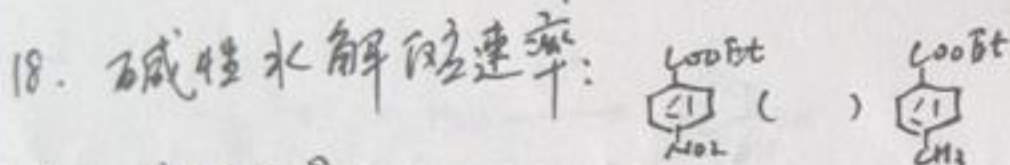 18. 碱性水解的速率: COOEt NO2 ( ) COOEt CH3